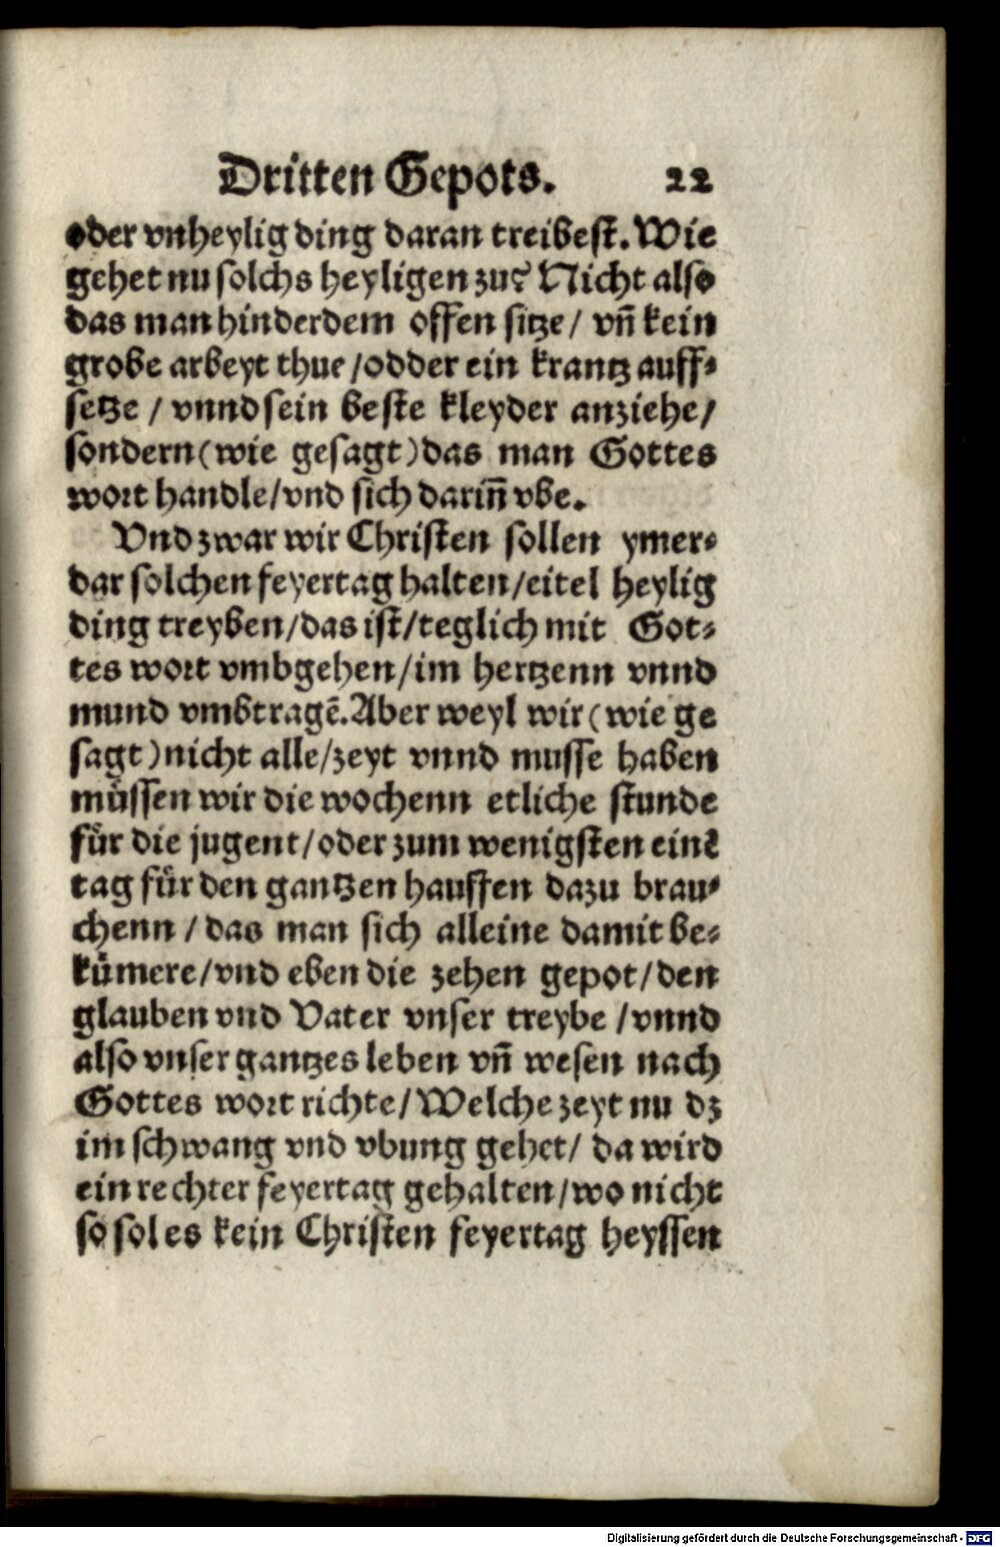 Dritten Gepots. 22
oder vnheylig ding daran treibest. Wie
gehet nu solchs heyligen zu? Nicht also
das man hinderdem offen sitze / vn̄ kein
grobe arbeyt thue / odder ein krantz auff⸗
setze / vnnd sein beste kleyder anziehe /
sondern (wie gesagt) das man Gottes
wort handle / vnd sich darin̄ vbe.
Vnd zwar wir Christen sollen ymer⸗
dar solchen feyertag halten / eitel heylig
ding treyben / das ist / teglich mit Got⸗
tes wort vmbgehen / im hertzenn vnnd
mund vmbtragē. Aber weyl wir (wie ge
sagt) nicht alle / zeyt vnnd musse haben
müssen wir die wochenn etliche stunde
für die jugent / oder zum wenigsten einē
tag für den gantzen hauffen dazu brau⸗
chenn / das man sich alleine damit be⸗
kümere / vnd eben die zehen gepot / den
glauben vnd Vater vnser treybe / vnnd
also vnser gantzes leben vn̄ wesen nach
Gottes wort richte / Welche zeyt nu dz
im schwang vnd vbung gehet / da wird
ein rechter feyertag gehalten / wo nicht
so sol es kein Christen feyertag heyssen
Digitalisierung gefördert durch die Deutsche Forschungsgemeinschaft - DFG